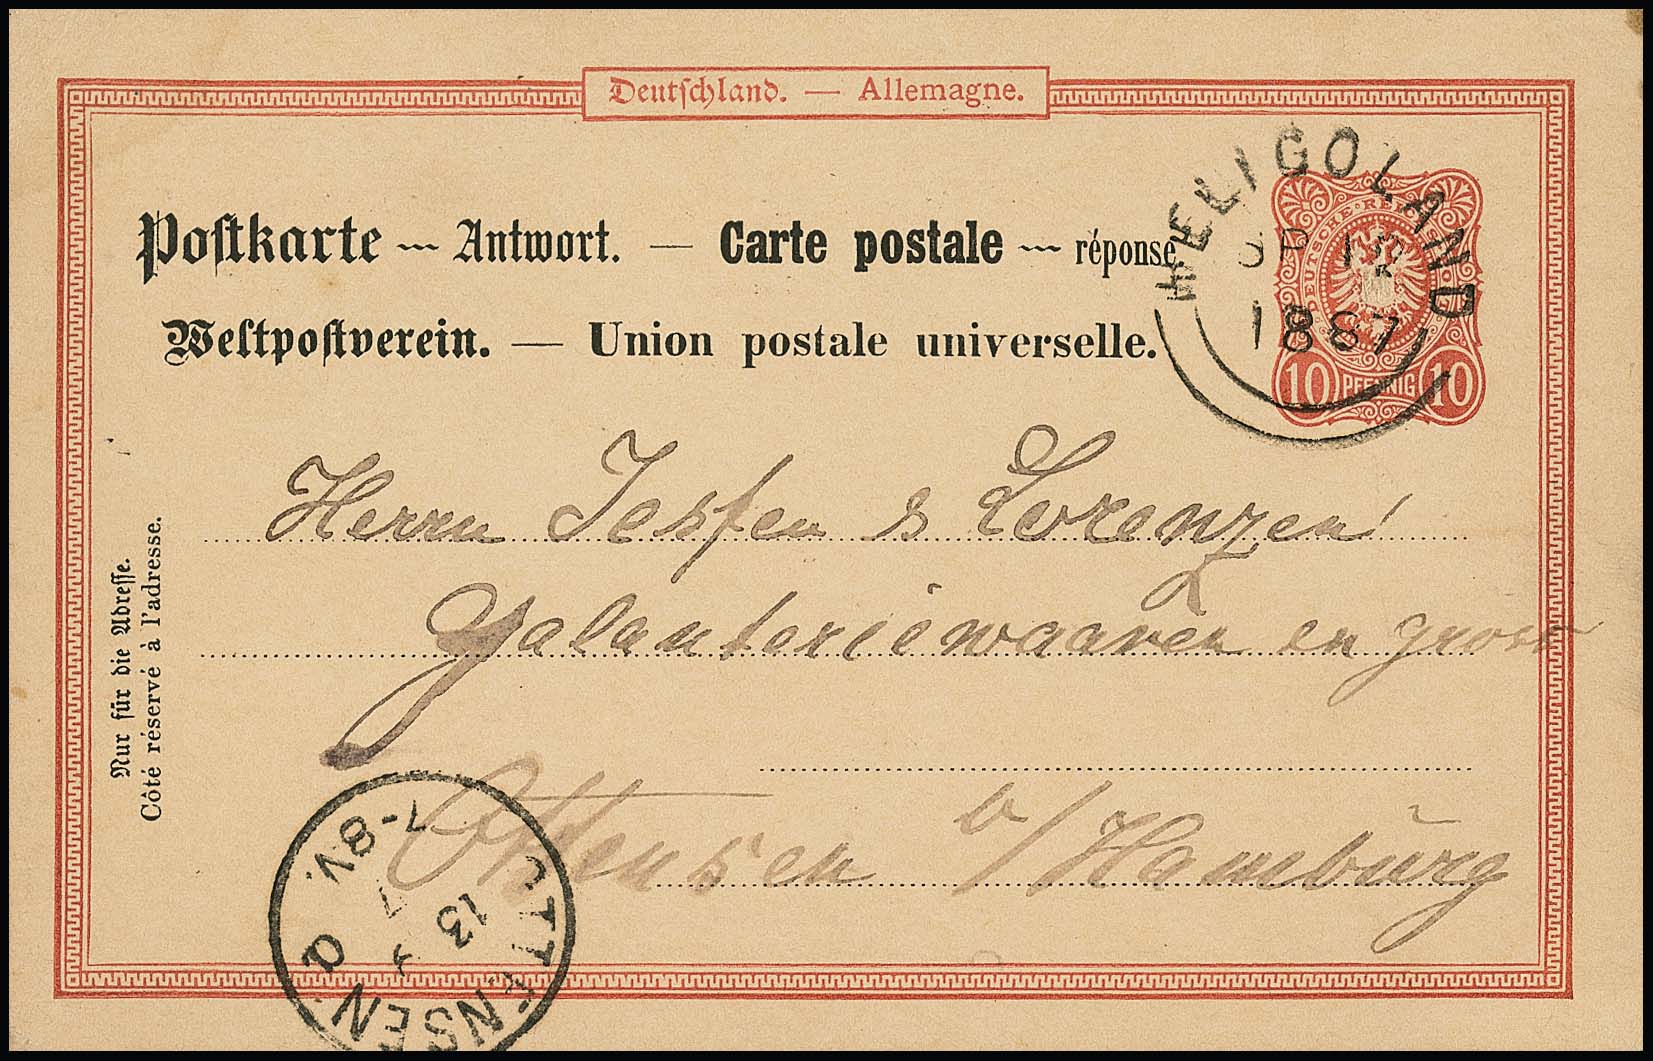 Deutschland. — Allemagne.
Postkarte — Antwort. — Carte postale — réponse
Weltpostverein. — Union postale universelle.
HELIGOLAND
SP 12
1887
DEUTSCHE REICHS
10 PFENNIG 10
Herrn Jessen & Lorenzen
Galanteriewaaren en gros
Ottensen b/Hamburg
Nur für die Adresse.
Côté réservé à l'adresse.
OTTENSEN
a
13
7-8V.